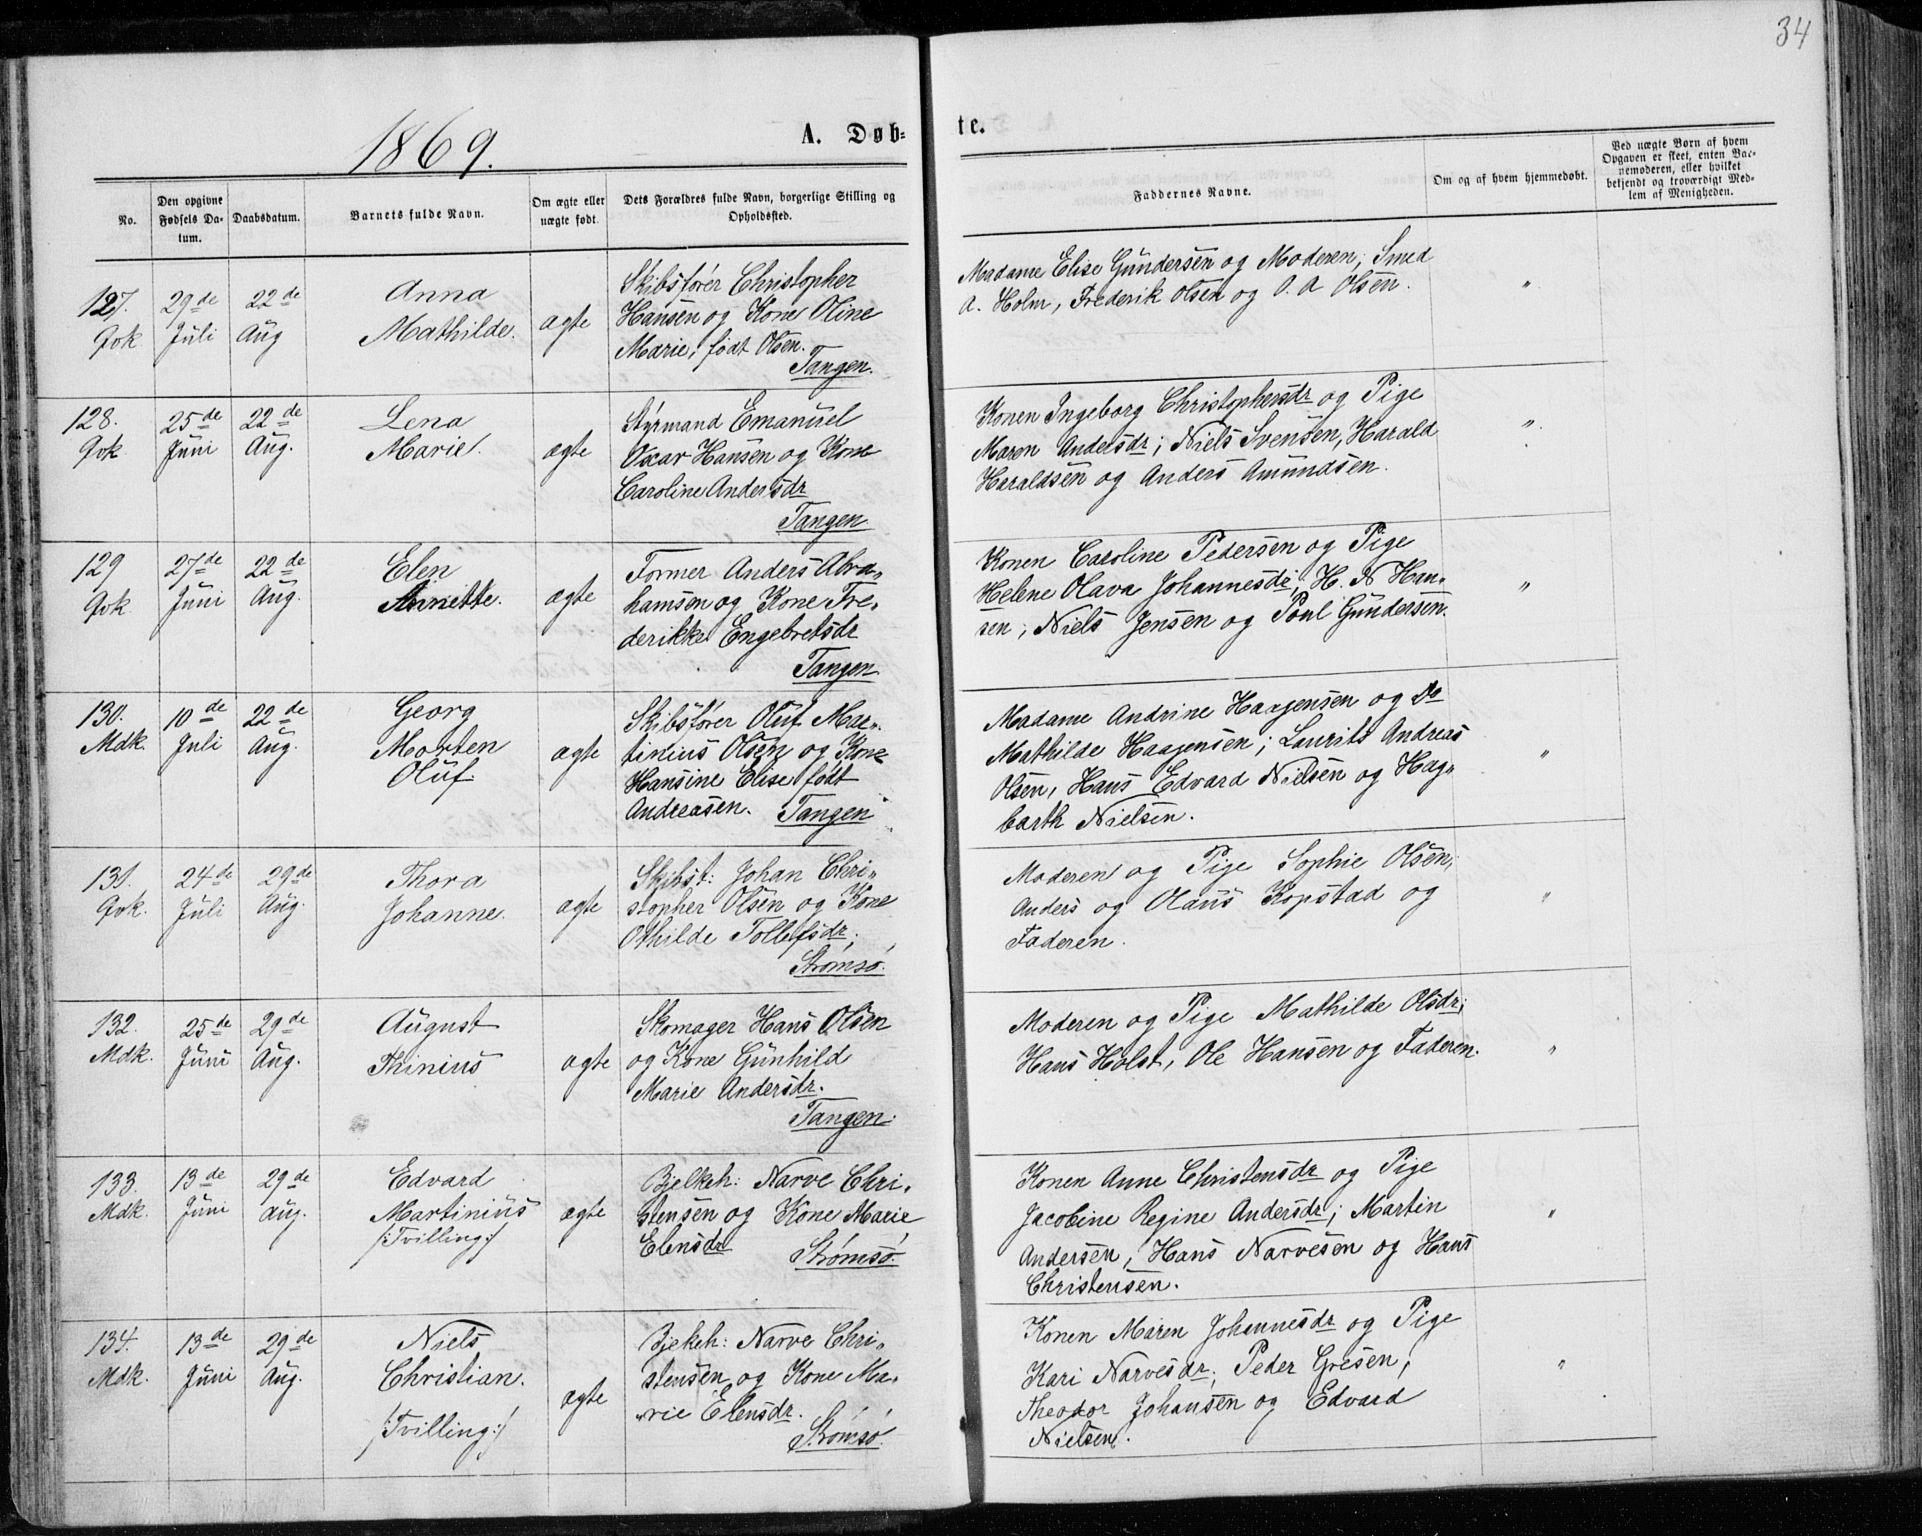 34
1869.
A. Døb-
te.
No.
Den opgivne Fødsels Da-tum.
Daabsdatum.
Barnets fulde Navn.
Om ægte eller uægte født.
Dets Forældres fulde Navn, borgerlige Stilling og Opholdsted.
Faddernes Navne.
Om og af hvem hjemmedøbt.
Ved uægte Børn af hvem Opgaven er skeet, enten Bar-nemoderen, eller hvilket bekjendt og troværdigt Med-lem af Menigheden.
127. Qvk
29de Juli
22de Aug
Anna
Mathilde.
ægte
Skibsfører Christopher
Hansen og Kone Oline
Marie, født Olsen.
Tangen.
Madame Elise Gundersen og Moderen; Smed
A. Holm, Frederik Olsen og O. A Olsen.
"
128. Qvk
25de Juni
22de Aug.
Lena
Marie.
ægte
Styrmand Emanuel
Oscar Hansen og Kone
Caroline Andersdr
Tangen
Konen Ingeborg Christophersdr og Pige
Maren Andersdr; Niels Svensen, Harald
Haraldsen og Anders Amundsen.
"
129 Qvk
27de Juni
22de Aug.
Elen
Annette.
ægte
Former Anders Abra-
hamsen og Kone Fre-
derikke Engebretsdr
Tangen
Konen Caroline Pedersen og Pige
Helene Olava Johannesdr; H. N Han-
sen, Niels Jensen og Poul Gundersen.
"
130. Mdk.
10de Juli
22de Aug.
Georg
Morten
Oluf.
ægte
Skibsfører Oluf Mar-
tinius Olsen og Kone
Hansine Elise født
Andreasen. Tangen
Madame Andrine Haagensen og Do
Mathilde Haagensen; Laurits Andreas
Olsen, Hans Edvard Nielsen og Hag-
barth Nielsen.
"
131. Qvk.
24de Juli
29de Aug.
Thora
Johanne.
ægte
Skibst: Johan Chri-
stopher Olsen og Kone
Othilde Tollefsdr,
Strømsø.
Moderen og Pige Sophie Olsen;
Anders og Olaus Kopstad og
Faderen.
"
132. Mdk.
25de Juni
29de Aug.
August
Thinius
ægte
Skomager Hans Olsen
og Kone Gunhild
Marie Andersdr.
Tangen.
Moderen og Pige Mathilde Olsdr;
Hans Holst, Ole Hansen og Faderen.
"
133. Mdk.
13de Juni
29de Aug.
Edvard
Martinius
/:Tvilling:/
ægte
Bjelkeh: Narve Chri-
stensen og Kone Marie
Elensdr
Strømsø.
Konen Anne Christensdr og Pige
Jacobine Regine Andersdr; Martin
Andersen, Hans Narvesen og Hans
Christensen.
"
134. Mdk.
13de Juni
29de Aug.
Niels
Christian.
/:Tvilling:/
ægte
Bjekeh: Narve Chri-
stensen og Kone Ma-
rie Elensdr.
Strømsø.
Konen Maren Johannesdr og Pige
Kari Narvesdr; Peder Gresen,
Theodor Johansen og Edvard
Nielsen.
"